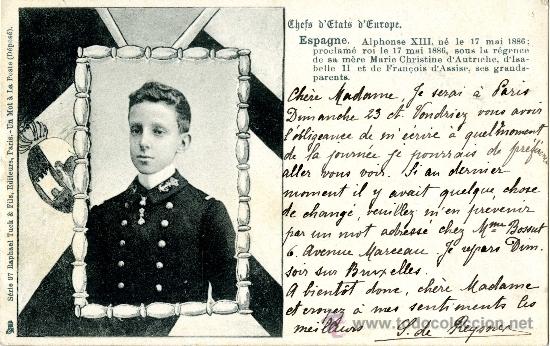 Chefs d'Etats d'Europe.
Espagne. Alphonse XIII, né le 17 mai 1886;
proclamé roi le 17 mai 1886, sous la régence
de sa mère Marie Christine d'Autriche, d'Isa-
belle 11 et de François d'Assise, ses grands-
parents.
Chère Madame, Je serai à Paris
Dimanche 23 ct. Voudriez vous avoir
l'obligeance de m'écrire à quel moment
de la journée je pourrais de préférence
aller vous voir. Si au dernier
moment il y avait quelque chose
de changé, veuillez m'en prévenir
par un mot adressé chez Mme Bossut
6 Avenue Marceau. Je repars Dim.
soir sur Bruxelles.
A bientôt donc, chère Madame
et croyez à mes sentiments les
meilleurs S. de
Série 97 Raphael Tuck & Fils, Editeurs, Paris. - Un Mot à La Poste (Déposé).
todocoleccion.net